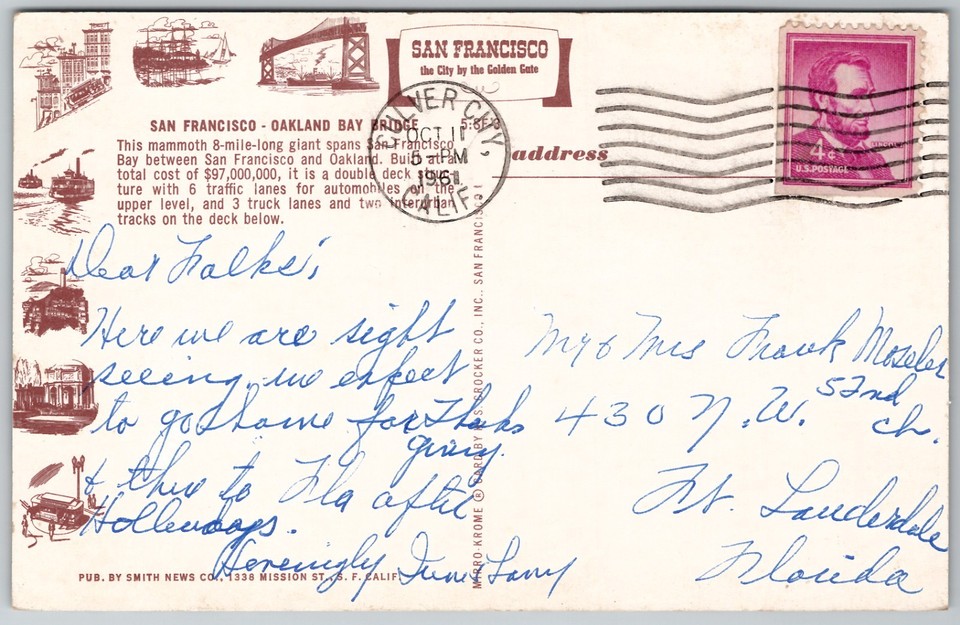 SAN FRANCISCO
the City by the Golden Gate
SAN FRANCISCO - OAKLAND BAY BRIDGE
This mammoth 8-mile-long giant spans San Francisco
Bay between San Francisco and Oakland. Built at a
total cost of $97,000,000, it is a double deck
ture with 6 traffic lanes for automobiles on the
upper level, and 3 truck lanes and two interurban
tracks on the deck below.
CULVER CITY,
OCT 11
5 - PM
1961
CALIF.
address
4¢
LINCOLN
U.S. POSTAGE
Dear Folks;
Here we are sight
seeing, we expect
to go home for Thanks
giving.
& then to Fla after
Holledays.
Irene Larry
Mr & Mrs Frank Moseler
430 N.W. 52nd
Ft. Lauderdale
Florida
MIRRO-KROME ® CARD BY H.S. CROCKER CO., INC., SAN FRANCISCO
PUB. BY SMITH NEWS CO., 1338 MISSION ST., S. F. CALIF.